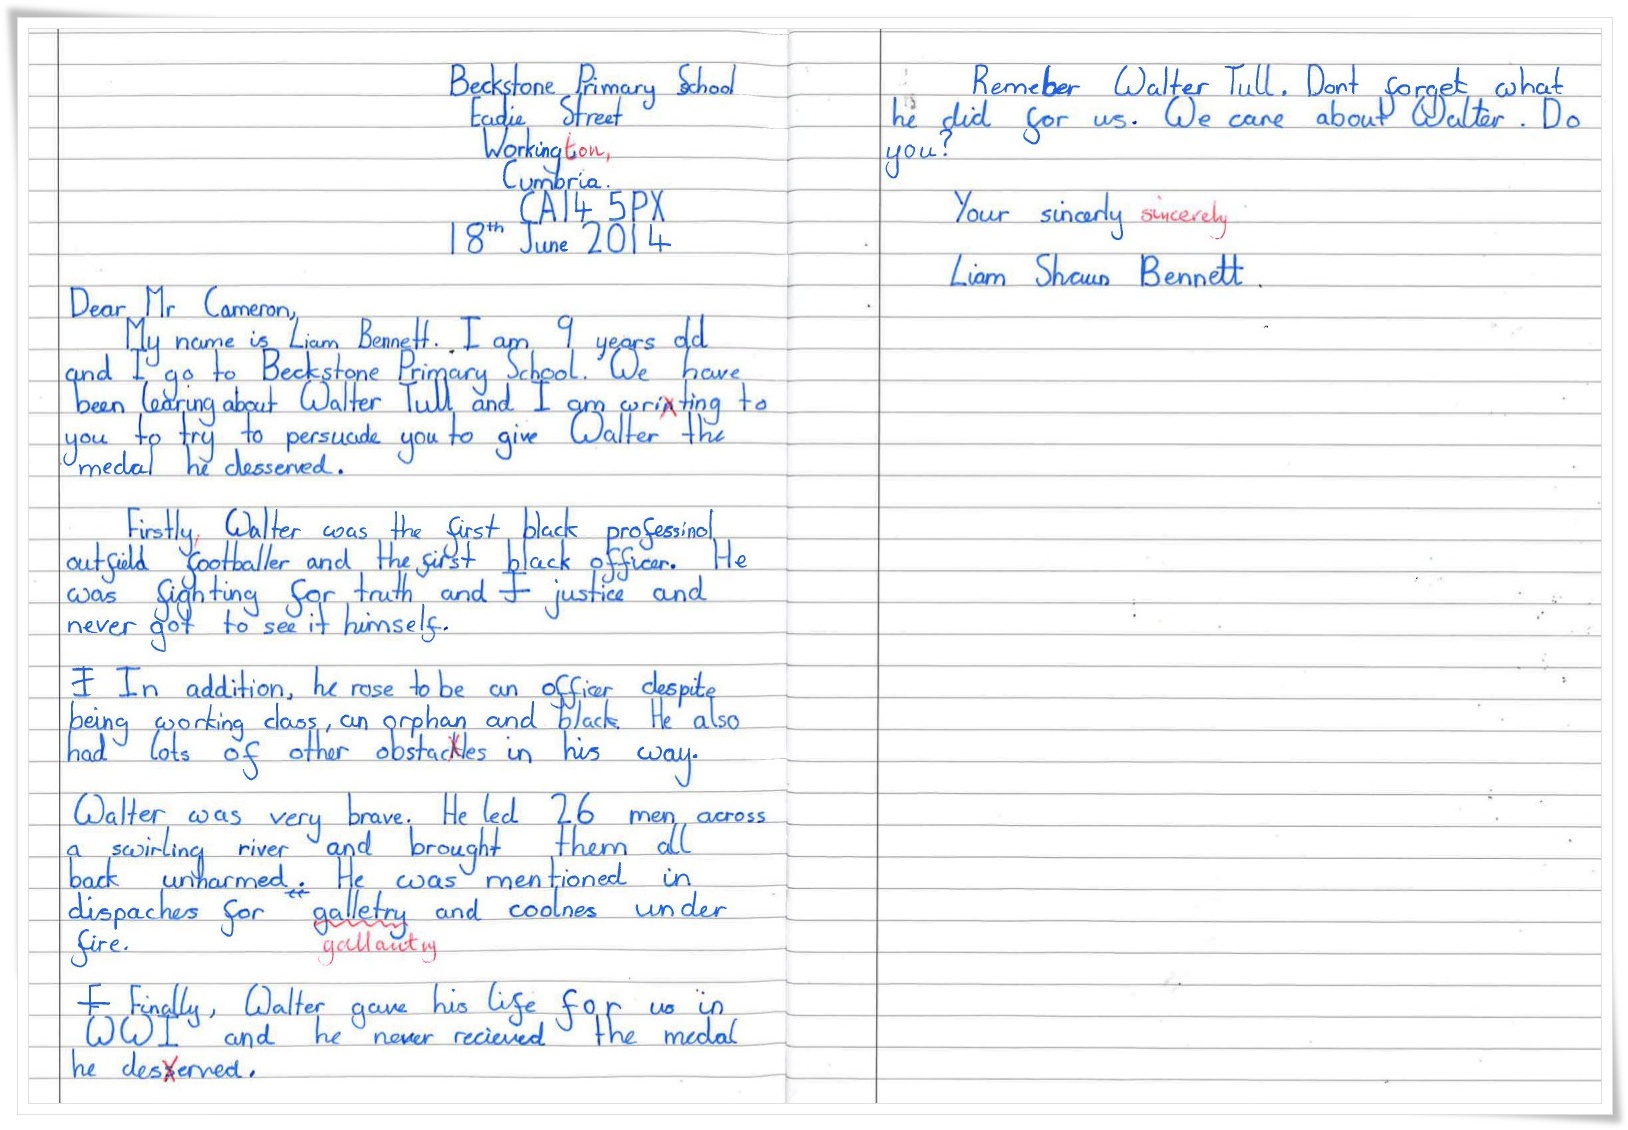 Beckstone Primary School
Eadie Street
Workington,
Cumbria.
CA14 5PX
18th June 2014
Dear Mr Cameron,
My name is Liam Bennett. I am 9 years old
and I go to Beckstone Primary School. We have
been learing about Walter Tull and I am writting to
you to try to persuade you to give Walter the
medal he desserved.
Firstly, Walter was the first black professinol
outfield footballer and the first black officer. He
was fighting for truth and f justice and
never got to see it himself.
F In addition, he rose to be an officer despite
being working class, an orphan and black. He also
had lots of other obstackles in his way.
Walter was very brave. He led 26 men across
a swirling river and brought them all
back unharmed. He was mentioned in
dispaches for "galletry and coolnes under
fire.
gallantry
F Finally, Walter gave his life for us in
WWI and he never recieved the medal
he desserved.
Remeber Walter Tull. Dont forget what
he did for us. We care about Walter. Do
you?
Your sincerly sincerely
Liam Shaun Bennett.